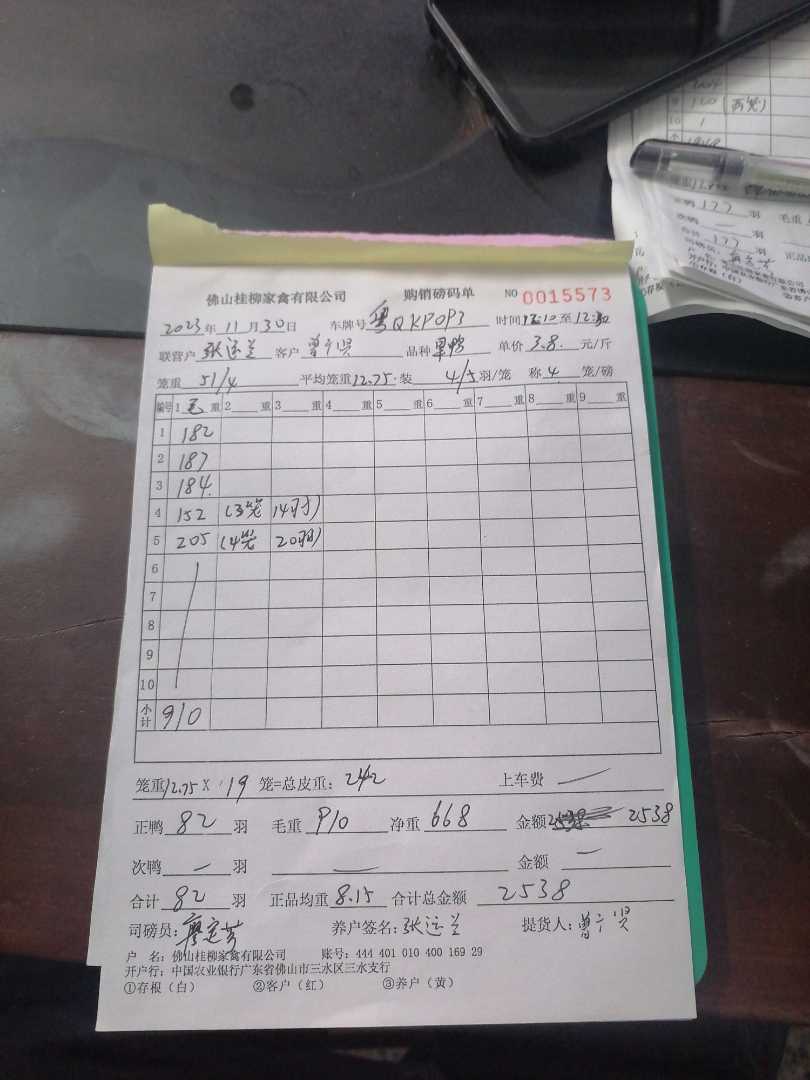 佛山桂柳家禽有限公司 购销磅码单 NO 0015573
2023年11月30日 车牌号 粤QKP0P3 时间12:10至12:30
联营户 张运兰 客户 曾广贤 品种 单价 3.8 元/斤
笼重 51/4 平均笼重12.75·装 4/5羽/笼 称 4 笼/磅
编号 1 毛 重 2 重 3 重 4 重 5 重 6 重 7 重 8 重 9 重
1 182
2 187
3 184
4 152 (3笼 14羽)
5 205 (4笼 20羽)
6
7
8
9
10
小计 910
笼重12.75 X 19 笼=总皮重: 242 上车费 —
正鸭 82 羽 毛重 910 净重 668 金额 2538
次鸭 — 羽 — 金额 —
合计 82 羽 正品均重 8.15 合计总金额 2538
司磅员: 廖定芳 养户签名: 张运兰 提货人: 曾广贤
户 名: 佛山桂柳家禽有限公司 账号: 444 401 010 400 169 29
开户行: 中国农业银行广东省佛山市三水区三水支行
①存根(白) ②客户(红) ③养户(黄)
9 120 (两笼)
10 1
正鸭 177 羽 毛重
次鸭 — 羽
合计 177 羽 正品
司磅员:
①存根(白)